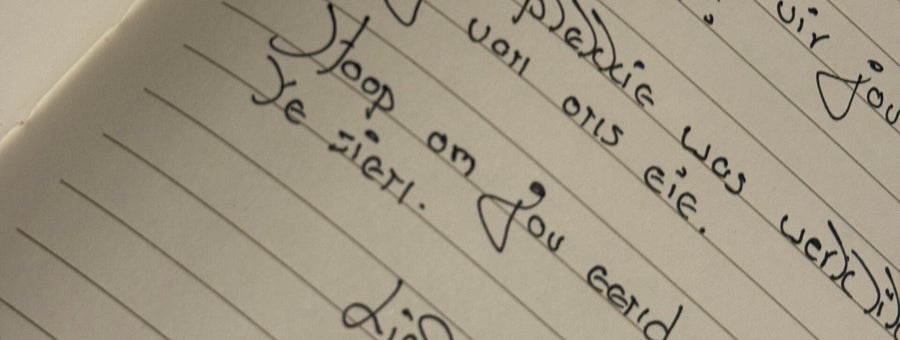 vir jou
plekkie was werkli
van ons eie.
Hoop om jou eend
te sien.
Lie